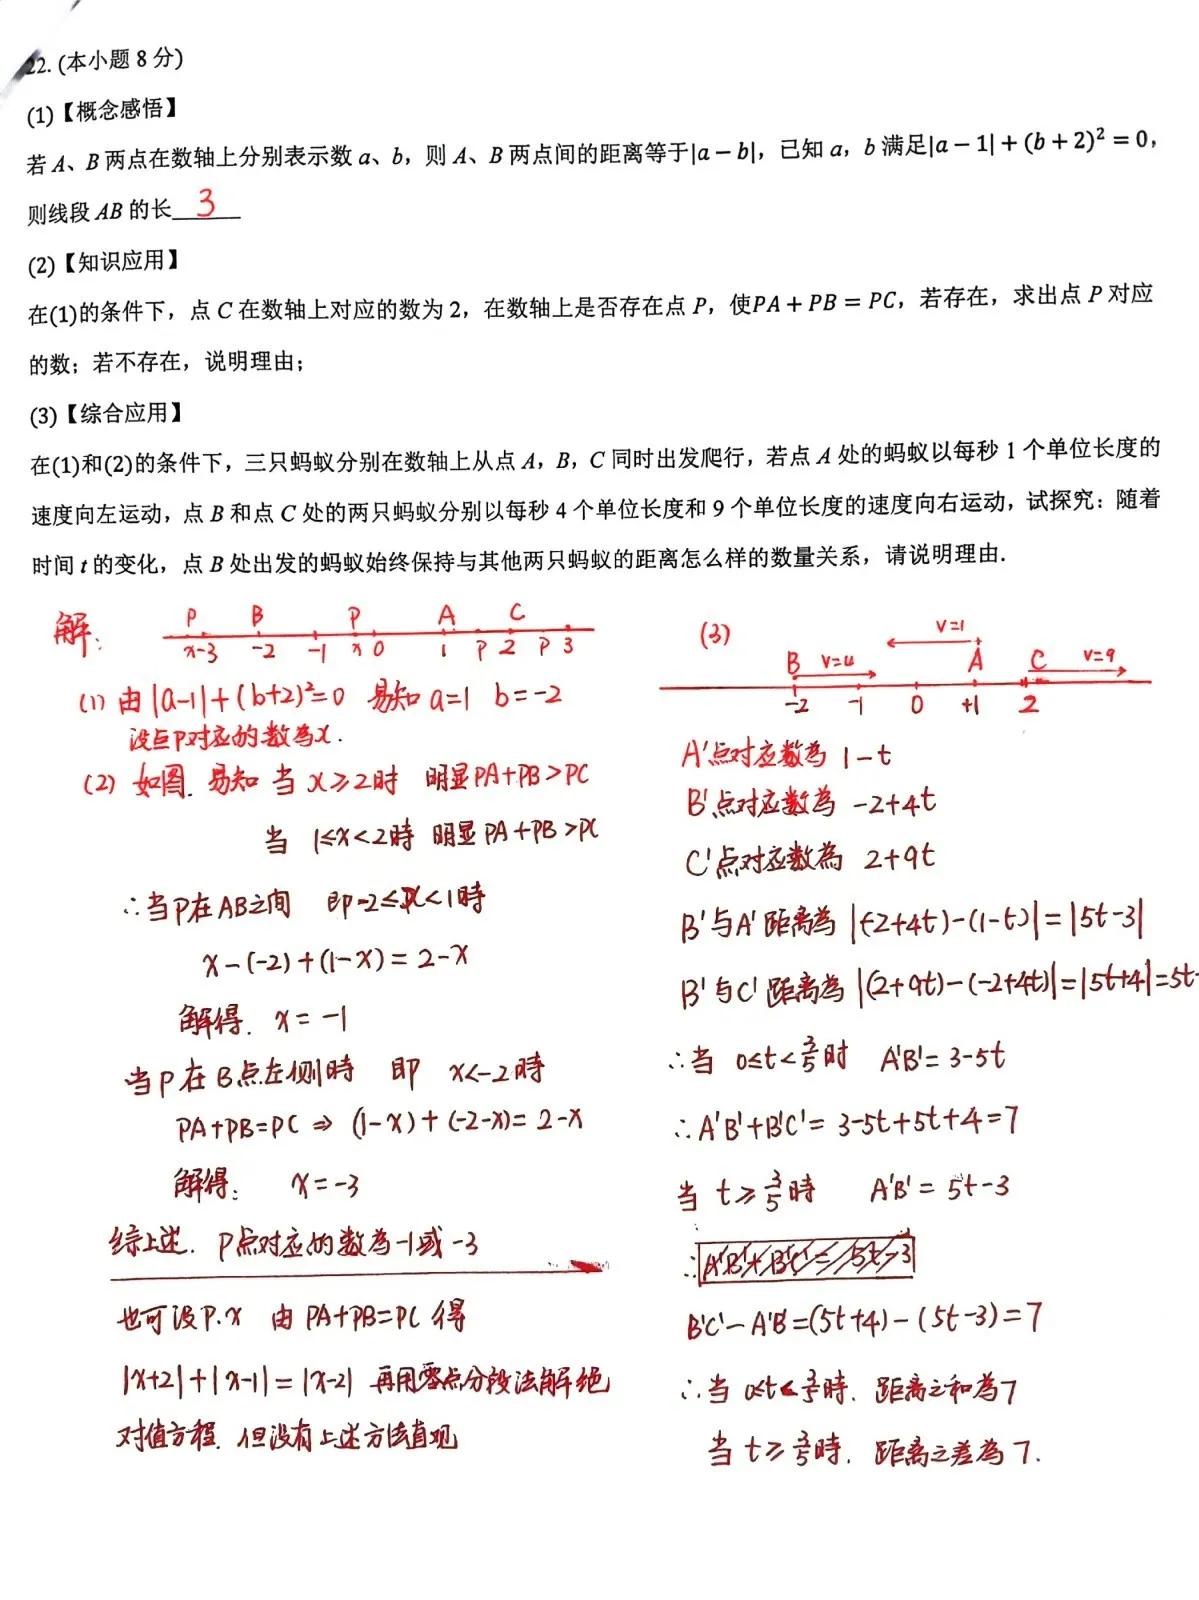 22. (本小题 8 分)
(1)【概念感悟】
若 A、B 两点在数轴上分别表示数 a、b，则 A、B 两点间的距离等于|a − b|，已知 a，b 满足|a − 1| + (b + 2)² = 0，
则线段 AB 的长 3
(2)【知识应用】
在(1)的条件下，点 C 在数轴上对应的数为 2，在数轴上是否存在点 P，使PA + PB = PC，若存在，求出点 P 对应
的数；若不存在，说明理由；
(3)【综合应用】
在(1)和(2)的条件下，三只蚂蚁分别在数轴上从点 A，B，C 同时出发爬行，若点 A 处的蚂蚁以每秒 1 个单位长度的
速度向左运动，点 B 和点 C 处的两只蚂蚁分别以每秒 4 个单位长度和 9 个单位长度的速度向右运动，试探究：随着
时间 t 的变化，点 B 处出发的蚂蚁始终保持与其他两只蚂蚁的距离怎么样的数量关系，请说明理由.
解:
P B P A C
x-3 -2 -1 x 0 1 P 2 P 3
(1) 由 |a-1|+(b+2)²=0 易知 a=1 b=-2
设点P对应的数為x.
(2) 如图. 易知 当 x≥2时 明显PA+PB>PC
当 1≤x<2時 明显PA+PB>PC
∴当P在AB之间 即-2≤x<1時
x-(-2)+(1-x)=2-x
解得. x=-1
当P在B点左侧時 即 x<-2時
PA+PB=PC ⇒ (1-x)+(-2-x)=2-x
解得: x=-3
综上述. P点对应的数為-1或-3
也可设P.x 由 PA+PB=PC 得
|x+2|+|x-1|=|x-2| 再用零点分段法解绝
对值方程. 但没有上述方法直观
(3)
V=1
B V=4 A C V=9
-2 -1 0 +1 2
A'点对应数為 1-t
B'点对应数為 -2+4t
C'点对应数為 2+9t
B'与A'距离為 |(-2+4t)-(1-t)|=|5t-3|
B'与C'距离為 |(2+9t)-(-2+4t)|=|5t+4|=5t-
∴当 0≤t<3/5时 A'B'=3-5t
∴A'B'+B'C'=3-5t+5t+4=7
当 t≥3/5時 A'B'=5t-3
∴A'B'+B'C'=5t-3
B'C'-A'B'=(5t+4)-(5t-3)=7
∴当 0≤t<3/5時. 距离之和為7
当 t≥3/5時. 距离之差為7.